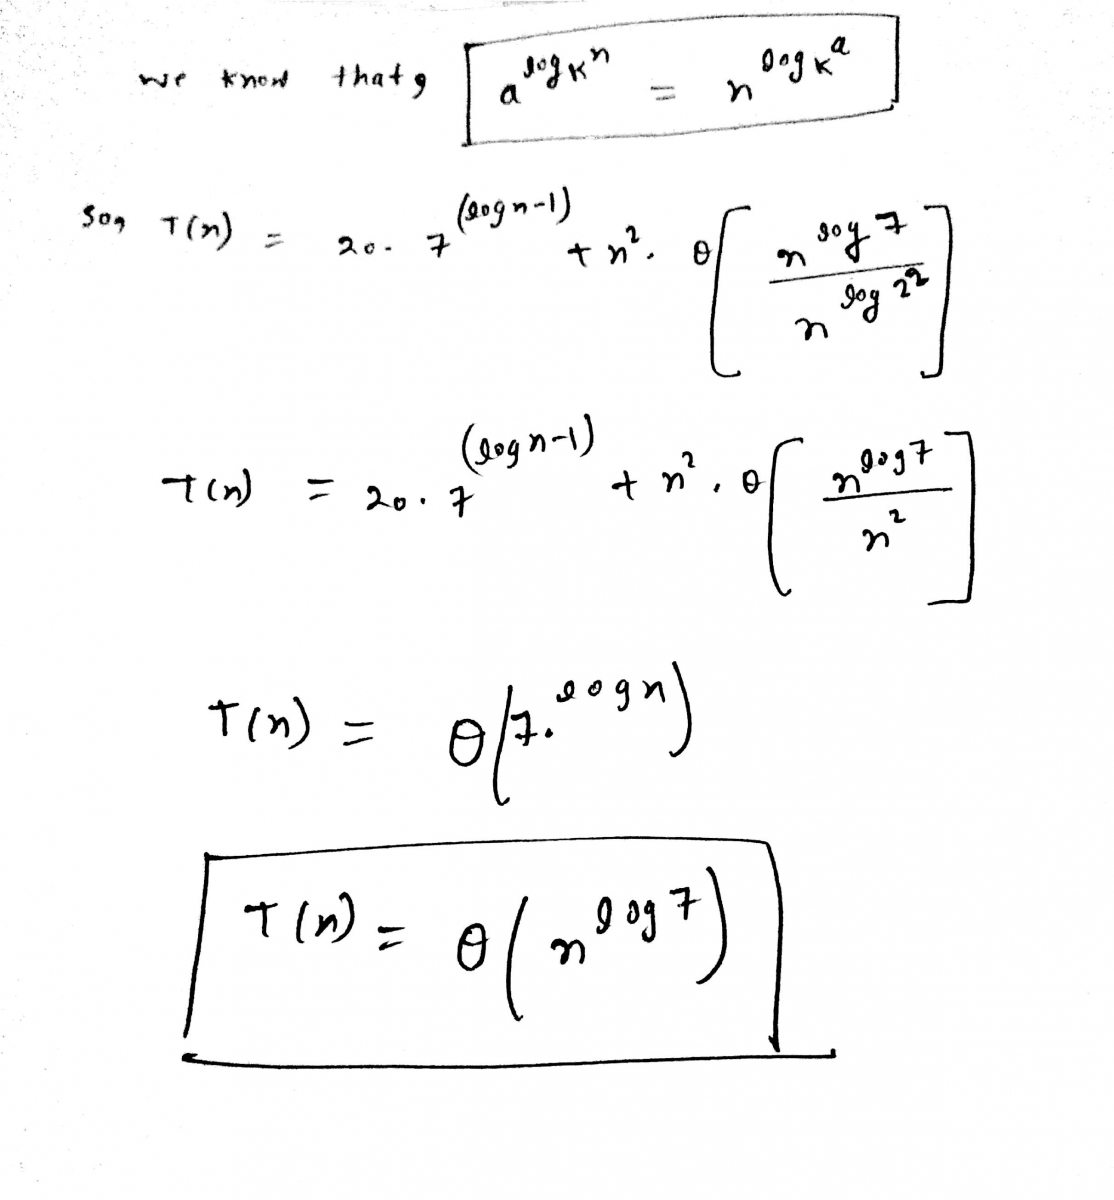 we know that, a^{log_K n} = n^{log_K a}
So, T(n) = 20. 7^{(log n-1)} + n^2. θ[n^{log 7} / n^{log 2^2}]
T(n) = 20. 7^{(log n-1)} + n^2. θ[n^{log 7} / n^2]
T(n) = θ(7.^{log n})
T(n) = θ(n^{log 7})